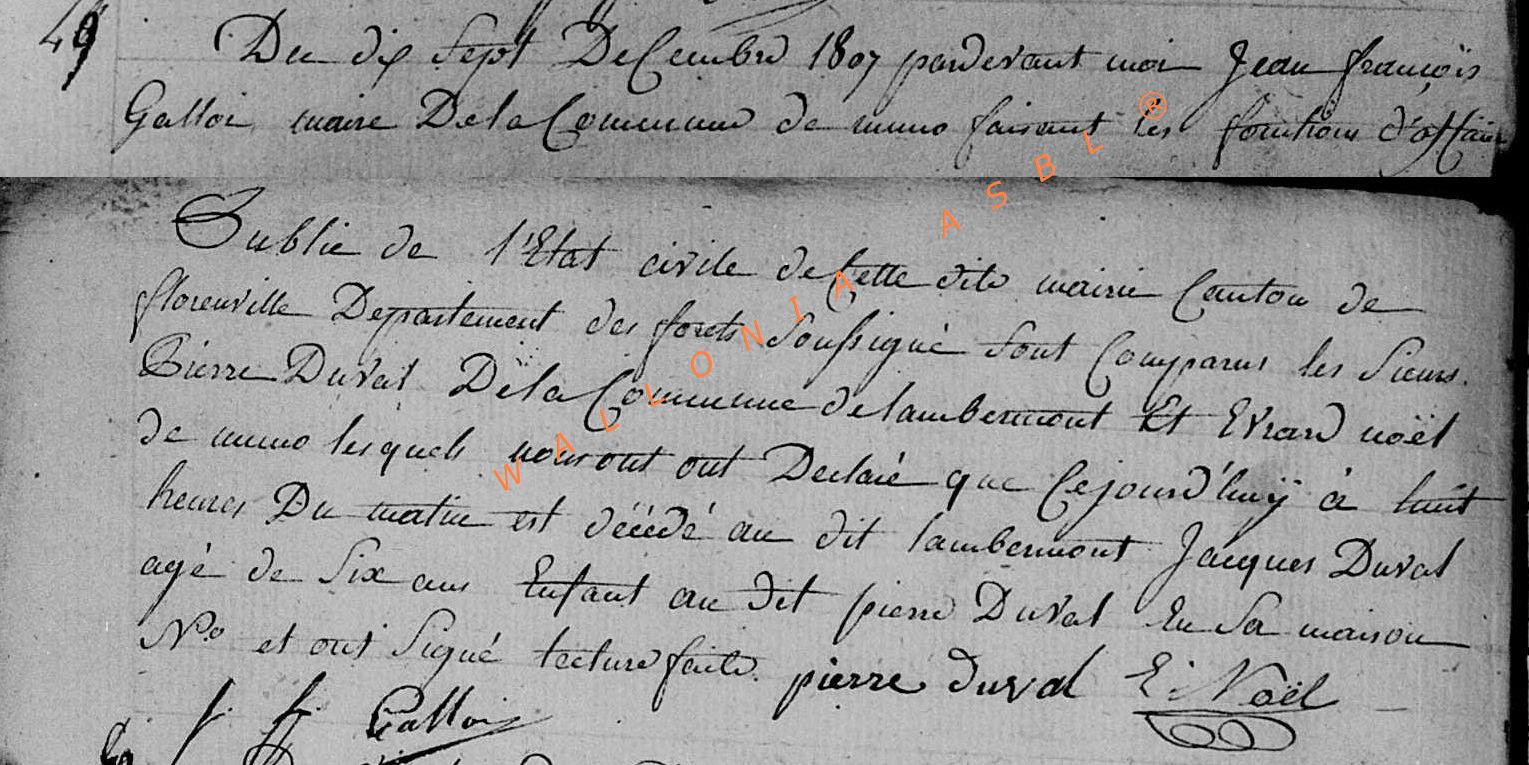 49
Du dix Sept DeCembre 1807 pardevant moi Jean françois
Galloi maire DelaCommune de muno faisant les fonctions d'officier
Publie de l'Etat civile de Cette dite mairie Canton de
florenville Departement des forets Soussigné Sont Comparus les Sieurs
Pierre Duval DelaCommune de lambermont Et Evrard noël
de muno lesquels nous ont ont Declaré que Cejourd'huÿ à huit
heures Du matin est décédé au dit lambermont Jacques Duval
agé de Six ans Enfant au dit pierre Duval En Sa maison
N.o et ont Signé lecture faite pierre duval E Noël
j. f. Galloi
WALLONIA ASBL ®